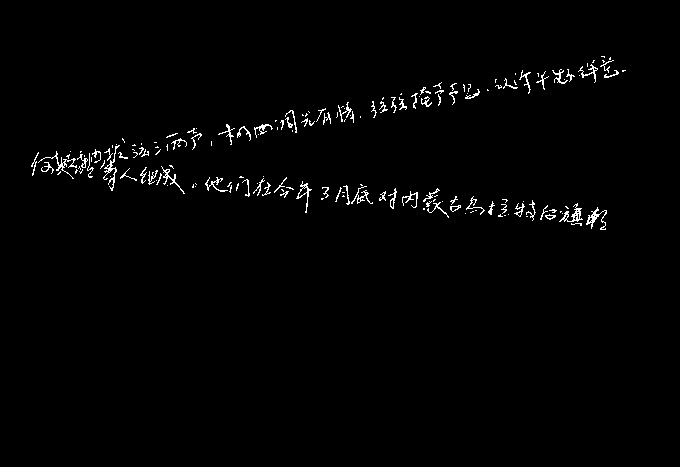 拨弦三两声，未成曲调先有情．弦弦掩声声思．似诉平生得意．
等人组成。他们在今年3月底对内蒙古乌拉特后旗朝